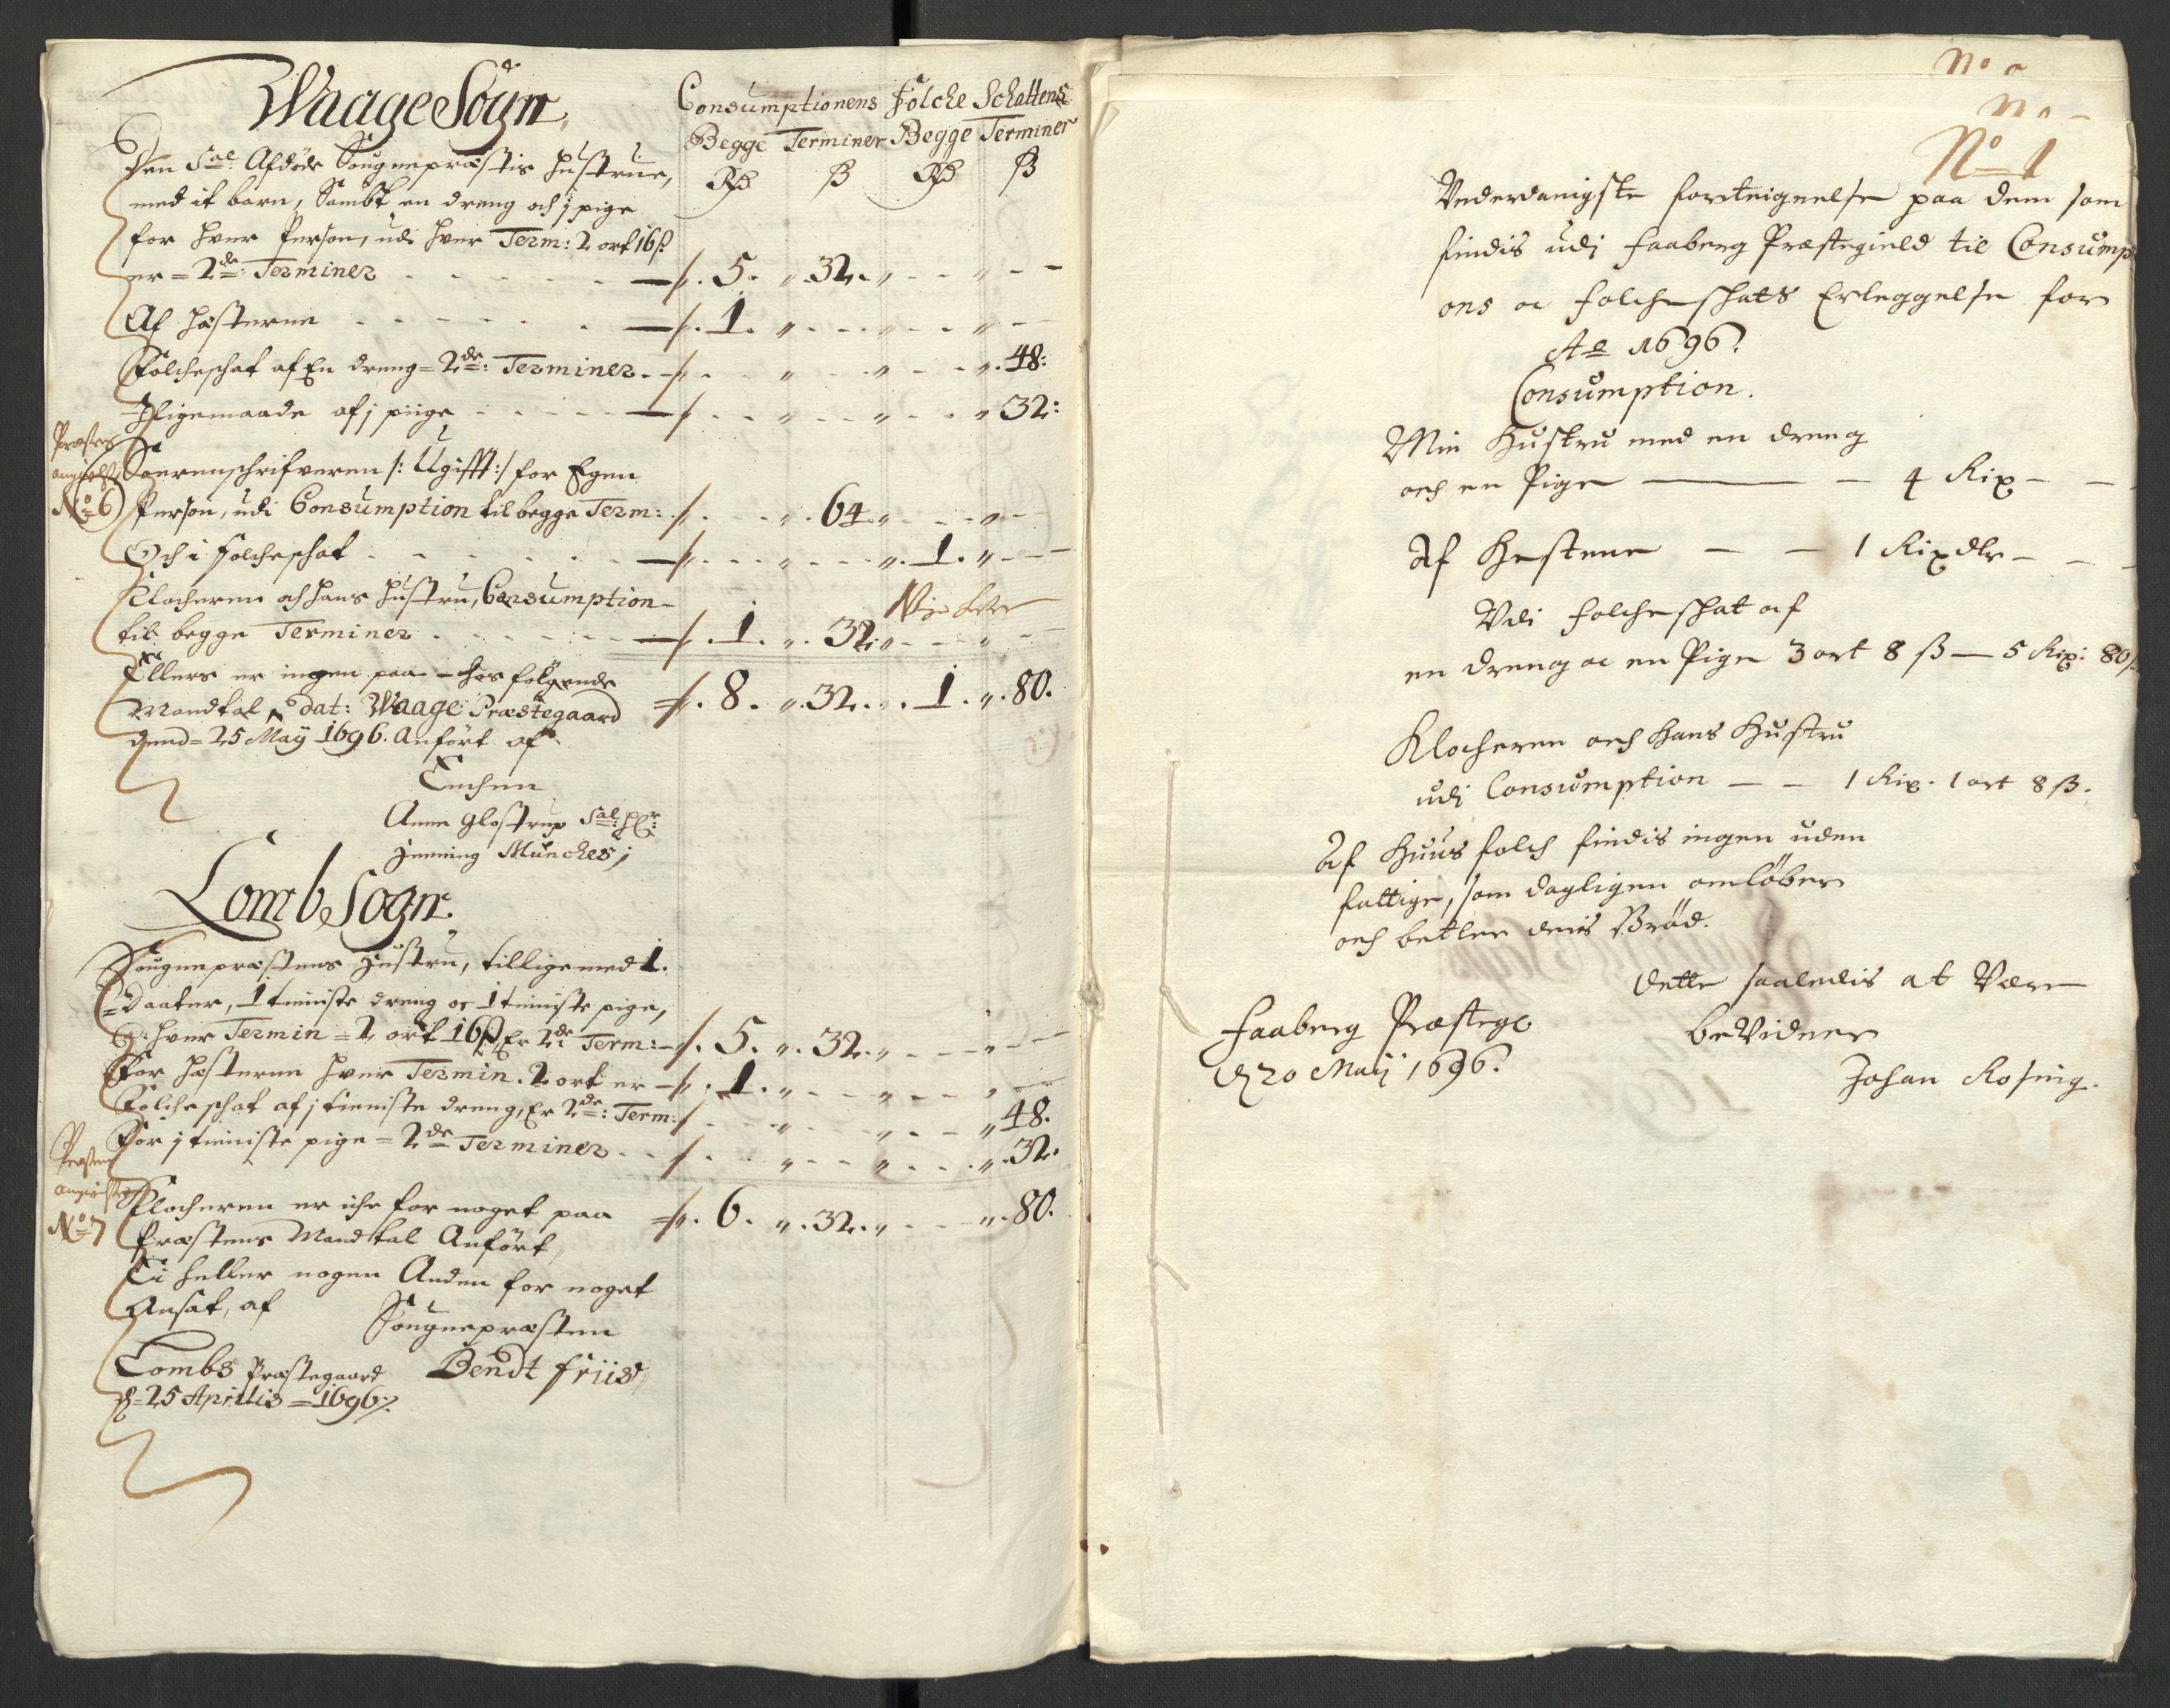 Waage Sogn,
Consumptionens Folche Schattens
Begge Terminer Begge Terminer
Rd ß Rd ß
Den Sal: Afdøde Sougnepræstis hustrue,
med it barn, Sambt en dreng och j pige
for hver Person, udi hver Term: 2 ort 16 ß
er = 2de: Terminer - - - 5 - 32 - -
Af hæsterne - - - 1 - - -
Folcheschat af En dreng = 2de: Terminer - - - 48:
J ligemaade af j piige - - - 32:
Præstens
angivelse
No 6
Soerenschrifveren /: Ugifft :/ for Egen
Person, udi Consumption til begge Term: - 64 - -
Och i folcheschat - - - 1 - -
Klocheren och hans hustru, Consumption
til begge Terminer - - - 1 - 32 - -
Ellers er ingen paa - hos følgende
Mandtal dat: Waage Præstegaard 8 - 32 - 1 - 80.
dend = 25 Maij 1696. Anført af
Enchen
Anne Glostrup Sal: Hr:
Henning Munches j
Lomb Sogn.
Sougnepræstens Hustru, tillige med 1.
Daater, 1 tieniste dreng oc 1 tieniste pige,
hver Termin = 2 ort 16 ß, Er 2de Term: - 5 - 32 - -
For hæsterne hver Termin. 2 ort er - 1 - - -
Folcheschat af j tieniste dreng, Er 2de: Term: - - 48.
For j tieniste pige = 2de Terminer - - - 32.
Præstens
angivelse
No 7
Klocheren er iche for noget paa 6 - 32 - - 80.
Præstens Mandtal Anført,
Ei heller nogen Anden for noget
Ansat, af
Sougnepræsten
Lombs Præstegaard Bendt Friis
d = 25 Aprilis = 1696.
No
No
No 1
Vnderdanigste forteignelse paa dem som
findis udj Faaberg Præstegield til Consump
ons oc folcheschats Erleggelse for
Ao 1696.
Consumption.
Min Hustru med en dreng
och en Pige — 4 Rix - -
Af Hestene - - 1 Rixdlr - -
Vdi folcheschat af
en dreng oc en Pige 3 ort 8 ß — 5 Rix: 80 ß
Klocheren och Hans Hustru
udj Consumption - - 1 Rix. 1 ort 8 ß.
Af Huus folch findis ingen uden
fattige, som dagligen omløber
och betler deris Brød.
Dette saaledis at Være
beVidner
Faaberg Præstege
d 20 Maij 1696.
Johan Rosing.